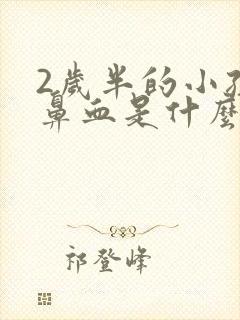 2歲半的小孩
鼻血是什麼
祁登峰